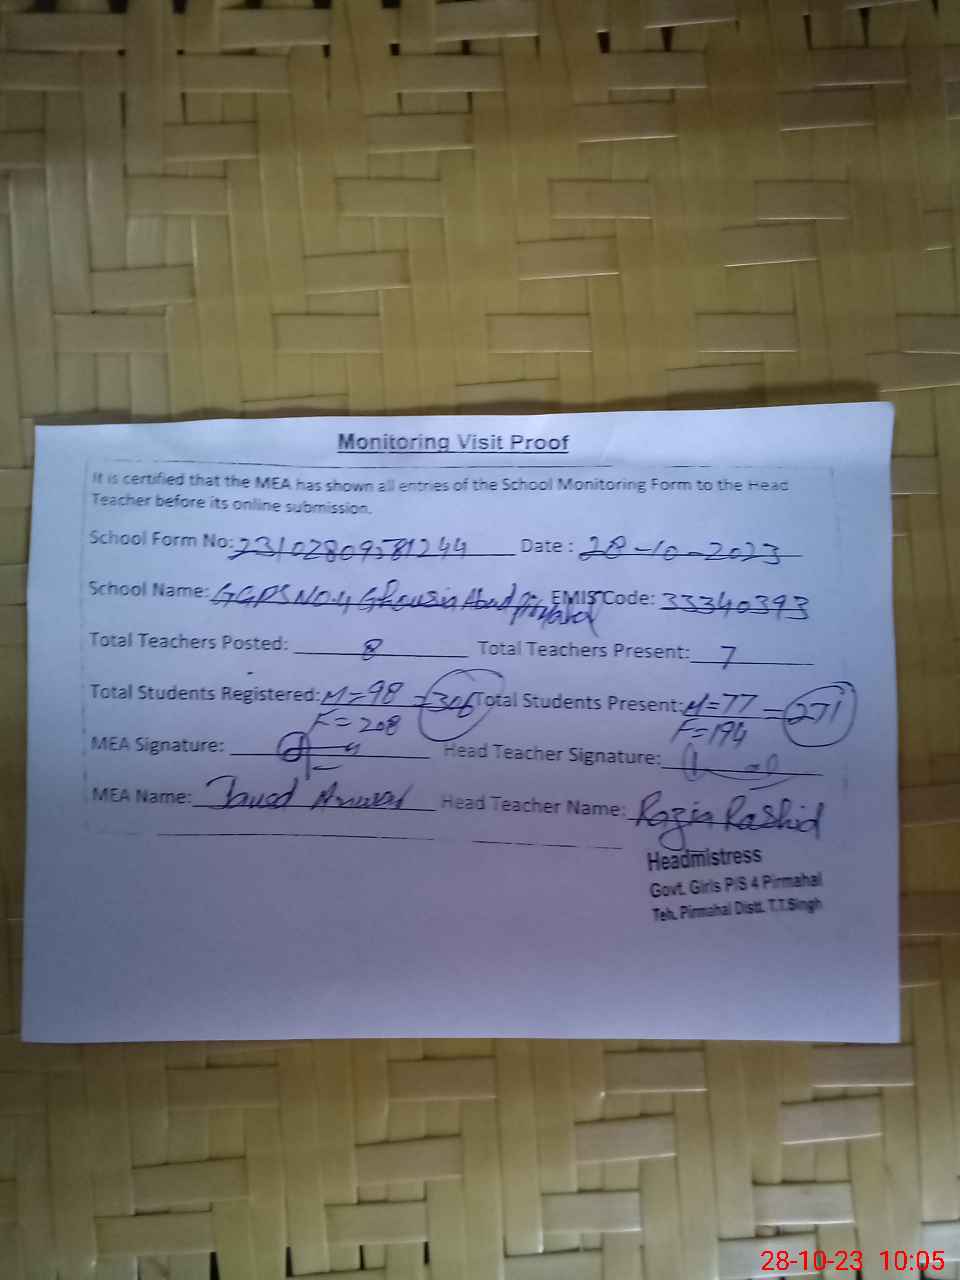 Monitoring Visit Proof
It is certified that the MEA has shown all entries of the School Monitoring Form to the Head
Teacher before its online submission.
School Form No: 23102809581244 Date : 28-10-2023
School Name: GGPS No.4 Ghousia Abad Pirmahal EMIS Code: 33340393
Total Teachers Posted: 8 Total Teachers Present: 7
Total Students Registered: M=98 =306 Total Students Present: M=77 =271
F=208 F=194
MEA Signature: Head Teacher Signature:
MEA Name: Javed Anwar Head Teacher Name: Razia Rashid
Headmistress
Govt. Girls P/S 4 Pirmahal
Teh. Pirmahal Distt. T.T.Singh
28-10-23 10:05